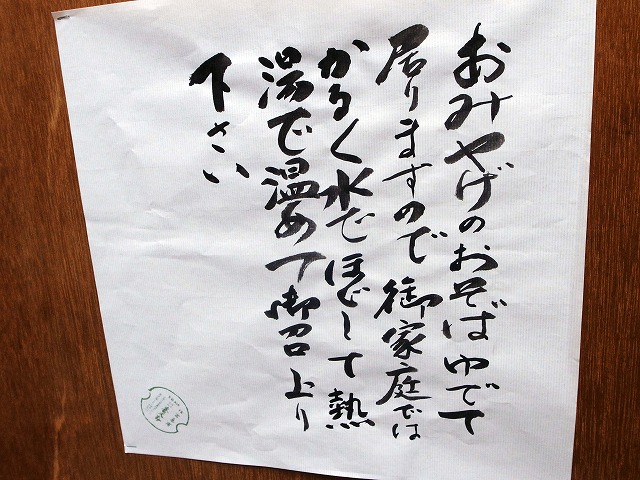 おみやげのおそばゆでて
居りますので御家庭では
かるく水でほどして熱
湯で温めて御召上り
下さい